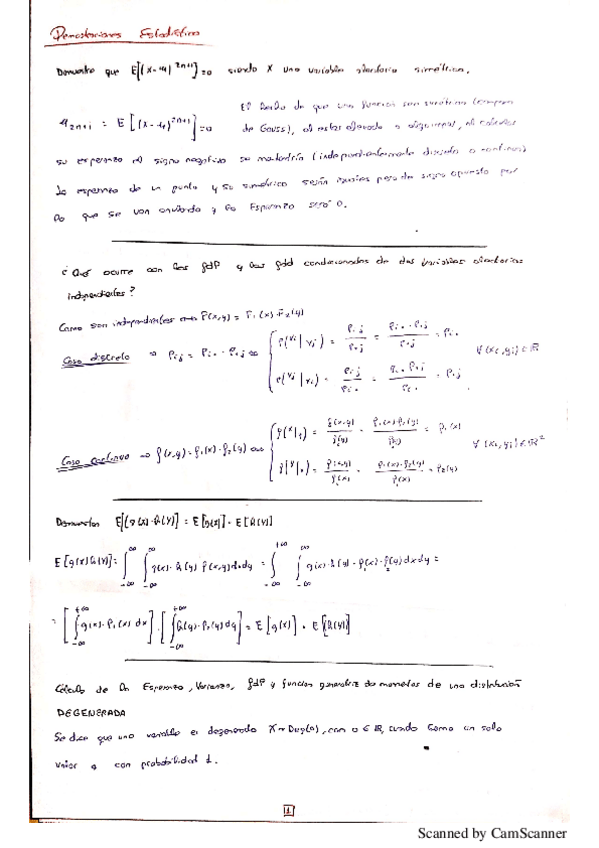 Demostraciones Estadística
Demuestre que E[(X-μ)^{2n+1}]=0 siendo X una variable aleatoria simétrica.
μ_{2n+1} = E[(X-μ)^{2n+1}]=0 El hecho de que una función sea simétrica (campana
de Gauss), al estar elevado a algo impar, al calcular
su esperanza el signo negativo se mantendría (independientemente discreto o continuo)
La esperanza de un punto y su simétrico serán iguales pero de signo opuesto por
lo que se van anulando y la Esperanza será 0.
¿Qué ocurre con las fdP y las fdd condicionadas de dos variables aleatorias
independientes?
Como son independientes F(x,y) = F₁(x)·F₂(y)
Caso discreto ⇒ P_{ij} = P_{i·} · P_{·j}
Caso continuo ⇒ f(x,y) = f₁(x)·f₂(y)
Demuestra E[g(X)·h(Y)] = E[g(X)] · E[h(Y)]
E[g(X)h(Y)] = ∫_{-∞}^{∞} ∫_{-∞}^{∞} g(x)·h(y) f(x,y) dxdy = ∫_{-∞}^{+∞} ∫_{-∞}^{∞} g(x)·h(y)·f₁(x)·f₂(y) dxdy =
= [∫_{-∞}^{+∞} g(x)·f₁(x) dx] · [∫_{-∞}^{+∞} h(y)·f₂(y) dy] = E[g(X)] · E[h(Y)]
Cálculo de la Esperanza, Varianza, fdP y función generatriz de momentos de una distribución
DEGENERADA
Se dice que una variable es degenerada X~Deg(a), con a ∈ ℝ, cuando toma un solo
valor a con probabilidad 1.
1
Scanned by CamScanner